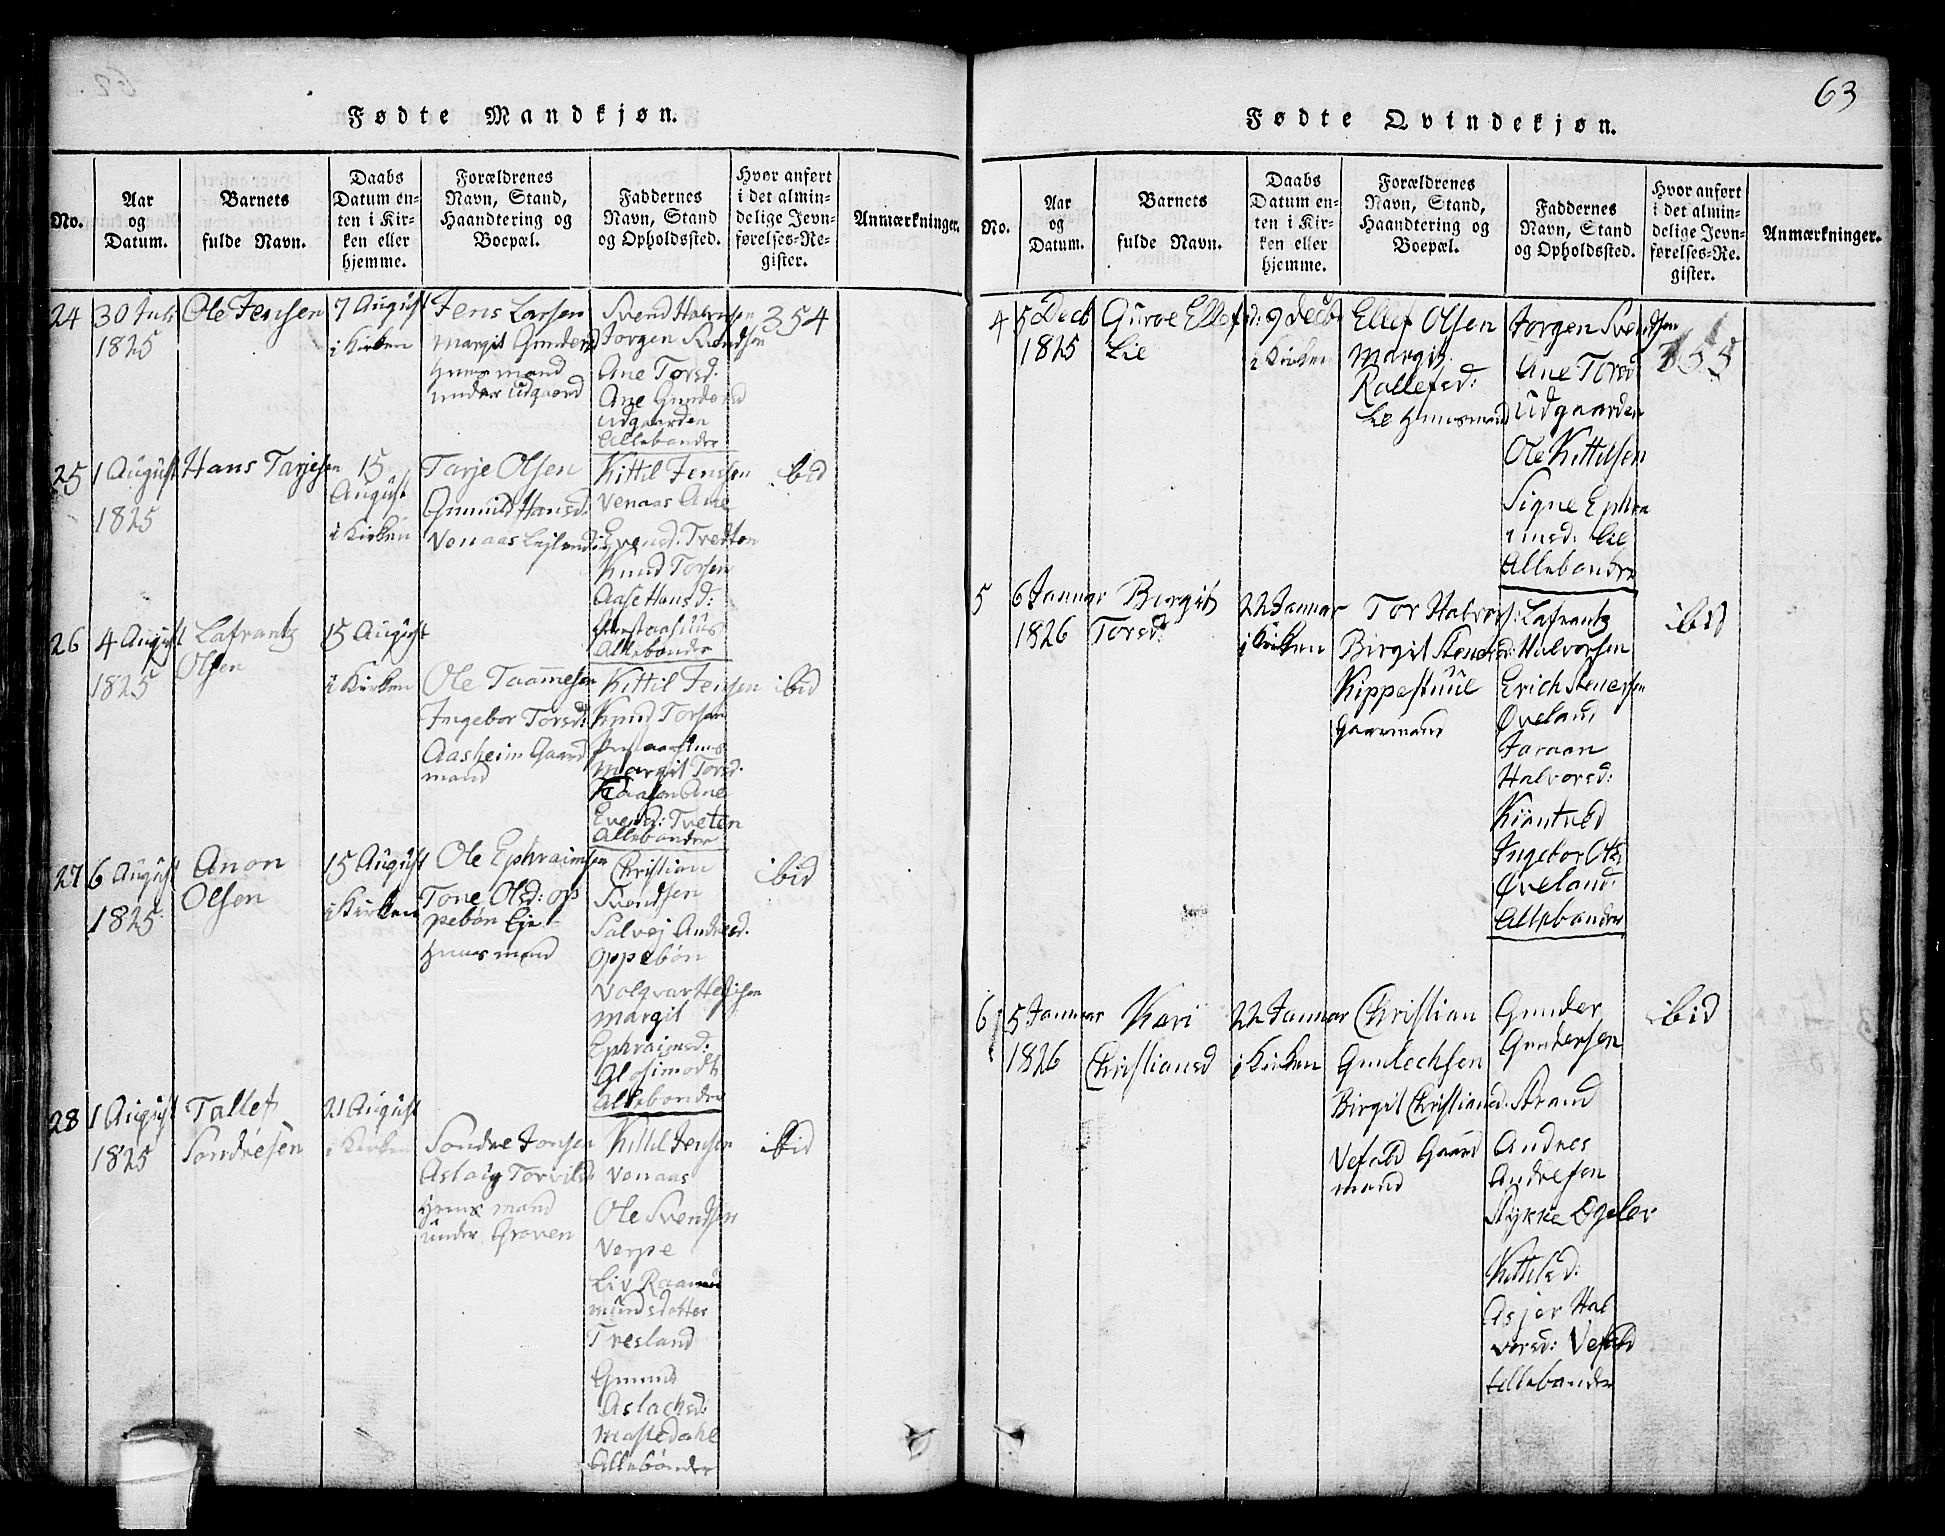 63
Fødte Mandkjøn.
No.
Aar
og
Datum.
Barnets
fulde Navn.
Daabs
Datum en-
ten i Kir-
ken eller
hjemme.
Forældrenes
Navn, Stand,
Haandtering og
Boepæl.
Faddernes
Navn, Stand
og Opholdssted.
Hvor anført
i det almin-
delige Jevn-
førelses-Re-
gister.
Anmærkninger.
24
30 Juli
1825
Ole Jensen
7 August
i Kirken
Jens Larsen
Margit Gunders
Huusmand
under Udgaard
Svend Halvorsen
Jorgen Svendsen
Ane Torsd:
Ane Gundersd
Udgaarden
Allebønder
354
25
1 August
1825
Hans Tarjesen
15
August
i Kirken
Tarje Olsen
Gunnild Hansd:
Venaas Lejlending
Kittil Jensen
Venaas Ane
Evensd: Tvedten
Knud Torsen
Aase Hansd:
Allebønder
ibid
26
4 August
1825
Lafrantz
Olsen
15 August
i Kirken
Ole Taamesen
Ingebor Torsd:
Aasheim Gaard
mand
Kittil Jensen
Knud Torsen
Margit Torsd:
Ane
Evensd: Tveten
Allebønder
ibid
27
6 August
1825
Anon
Olsen
15 August
i Kirken
Ole Ephraimsen
Tone Olsd: op
pebøn Eje
Huusmand
Christian
Svendsen
Salvej Andresd.
Oppebøn
Volqvar Hejesen
Margit
Ephraimsd:
Glosimodt
Allebønder
ibid
28
1 August
1825
Tallef
Sondresen
21 August
i Kirken
Sondre Jonsen
Aslaug Torvilds
Huusmand
under Groven
Kittil Jensen
Venaas
Ole Svendsen
Verpe
Liv Raamund
mundsdatter
Tvesland
Gunuld
Aslachsd:
Mastedahl
Allebønder
ibid
Fødte Qvindekjøn.
No.
Aar
og
Datum.
Barnets
fulde Navn.
Daabs
Datum en-
ten i Kir-
ken eller
hjemme.
Forældrenes
Navn, Stand,
Haandtering og
Boepæl.
Faddernes
Navn, Stand
og Opholdssted.
Hvor anført
i det almin-
delige Jevn-
førelses-Re-
gister.
Anmærkninger.
4
5 Decb
1825
Guroe Ellefsd:
Lie
9 Decb
i Kirken
Ellef Olsen
Margit
Rollefsd:
Lie Huusmand
Jorgen Svendsen
Ane Torsd
Udgaarden
Ole Kittilsen
Signe Ephra
imsd: Lie
Allebønder
355
5
6 Januar
1826
Birgit
Torsd:
22 Januar
i Kirken
Tor Halvors:
Birgit Stenersd:
Kippestuul
Gaarmand
Lafrantz
Halvorsen
Erich Stenersen
Øveland
Joraan
Halvorsd:
Kiontved
Ingebor Ols:
Øveland.
Allebønder
ibid
6
5 Januar
1826
Kari
Christiansd
22 Januar
i Kirken
Christian
Gunlechsen
Birgit Christiansd.
Vefald Gaard
mand
Gunder
Gundersen
Strand
Andres
Andresen
Stykke Ogelev
Kittilsd:
Asjer Hal
vorsd: Vefald
Allebønder
ibid